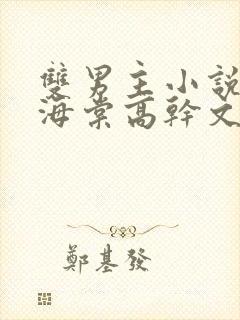 雙男主小說
海棠高幹文
鄭基發